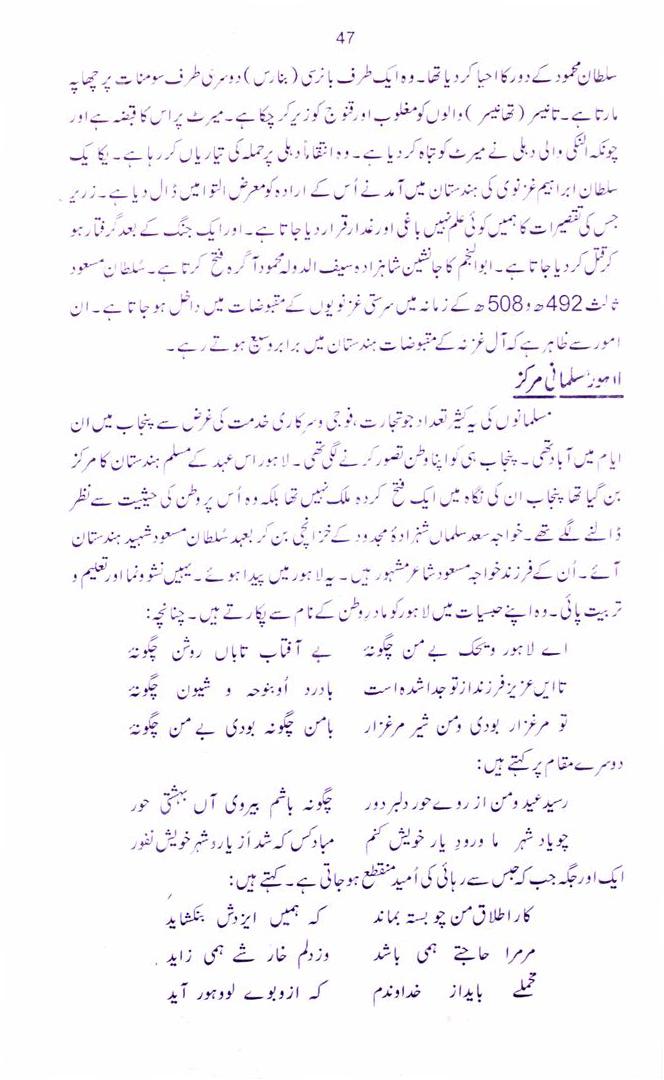 47
سلطان محمود کے دور کا احیا کر دیا تھا۔ وہ ایک طرف بانرسی (بنارس) دوسری طرف سومنات پر چھاپہ
مارتا ہے۔ تانیسر (تھانیسر) والوں کو مغلوب اور قنوج کو زیر کر چکا ہے۔ میرٹ پر اس کا قبضہ ہے اور
چونکہ النگی والی دہلی نے میرٹ کو تباہ کر دیا ہے۔ وہ انتقاماً دہلی پر حملہ کی تیاریاں کر رہا ہے۔ یکایک
سلطان ابراہیم غزنوی کی ہندستان میں آمد نے اُس کے ارادہ کو معرض التوا میں ڈال دیا ہے۔ زریر
جس کی تقصیرات کا ہمیں کوئی علم نہیں باغی اور غدار قرار دیا جاتا ہے۔ اور ایک جنگ کے بعد گرفتار ہو
کر قتل کر دیا جاتا ہے۔ ابوالنجم کا جانشین شاہزادہ سیف الدولہ محمود آگرہ فتح کرتا ہے۔ سُلطان مسعود
ثالث 492ھ و 508ھ کے زمانہ میں سرستی غزنویوں کے مقبوضات میں داخل ہو جاتا ہے۔ ان
امور سے ظاہر ہے کہ آلِ غزنہ کے مقبوضات ہندستان میں برابر وسیع ہوتے رہے۔
لاہور مُسلمانی مرکز
مسلمانوں کی یہ کثیر تعداد جو تجارت، فوجی و سرکاری خدمت کی غرض سے پنجاب میں ان
ایام میں آباد تھی۔ پنجاب ہی کو اپنا وطن تصور کرنے لگی تھی۔ لاہور اس عہد کے مسلم ہندستان کا مرکز
بن گیا تھا پنجاب ان کی نگاہ میں ایک فتح کردہ ملک نہیں تھا بلکہ وہ اُس پر وطن کی حیثیت سے نظر
ڈالنے لگے تھے۔ خواجہ سعد سلمان شہزادۂ مجدود کے خزانچی بن کر بعہد سُلطان مسعود شہید ہندستان
آئے۔ اُن کے فرزند خواجہ مسعود شاعر مشہور ہیں۔ یہ لاہور میں پیدا ہوئے۔ یہیں نشوونما اور تعلیم و
تربیت پائی۔ وہ اپنے حبسیات میں لاہور کو مادرِ وطن کے نام سے پکارتے ہیں۔ چنانچہ:
اے لاہور ویحک بے من چگونۂ بے آفتاب تاباں روشن چگونۂ
تا ایں عزیز فرزند از تو جدا شدہ است بادرد اُو بنوحہ و شیون چگونۂ
تو مرغزار بودی ومن شیر مرغزار بامن چگونہ بودی بے من چگونۂ
دوسرے مقام پر کہتے ہیں:
رسید عید ومن از روے حور دلبر دور چگونہ باشم بیروی آں بہشتی حور
چو یاد شہر ما ورودِ یار خویش کنم مباد کس کہ شد از یار و شہر خویش نفور
ایک اور جگہ جب کہ حبس سے رہائی کی اُمید منقطع ہو جاتی ہے۔ کہتے ہیں:
کار اطلاق من چو بستہ بماند کہ ہمیں ایزدش بنکشاید
مرمرا حاجتے ہمی باشد وزدلم خار شے ہمی زاید
مخملے باید از خداوندم کہ ازو بوے لووہور آید